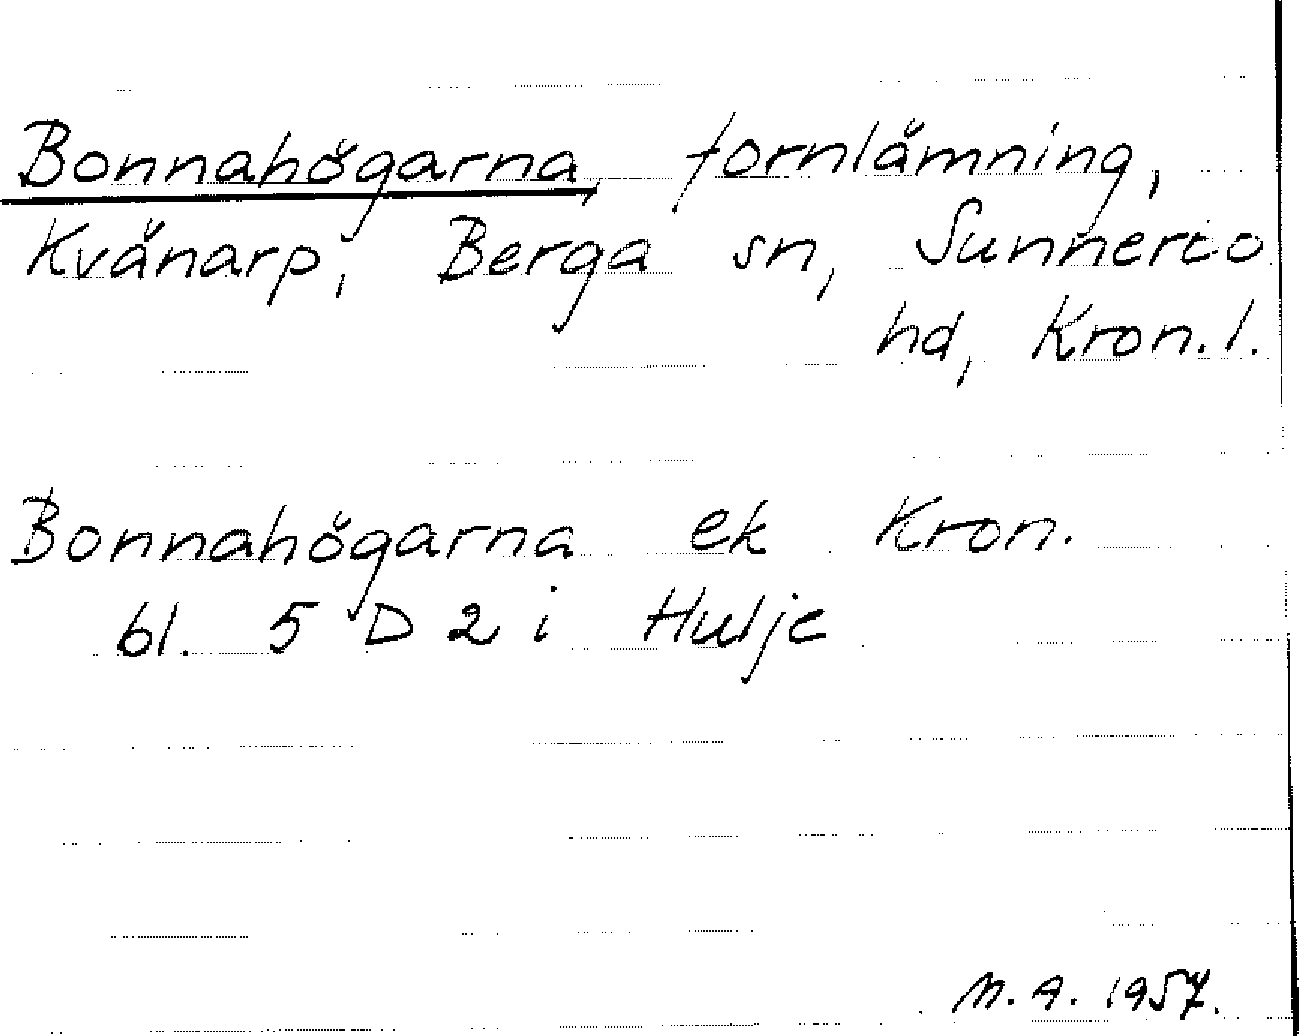 Bonnahögarna, fornlämning,
Kvänarp, Berga sn, Sunnerbo
hd, Kron. l.
Bonnahögarna ek Kron.
bl. 5 D 2 i Hulje
N. A. 1957.